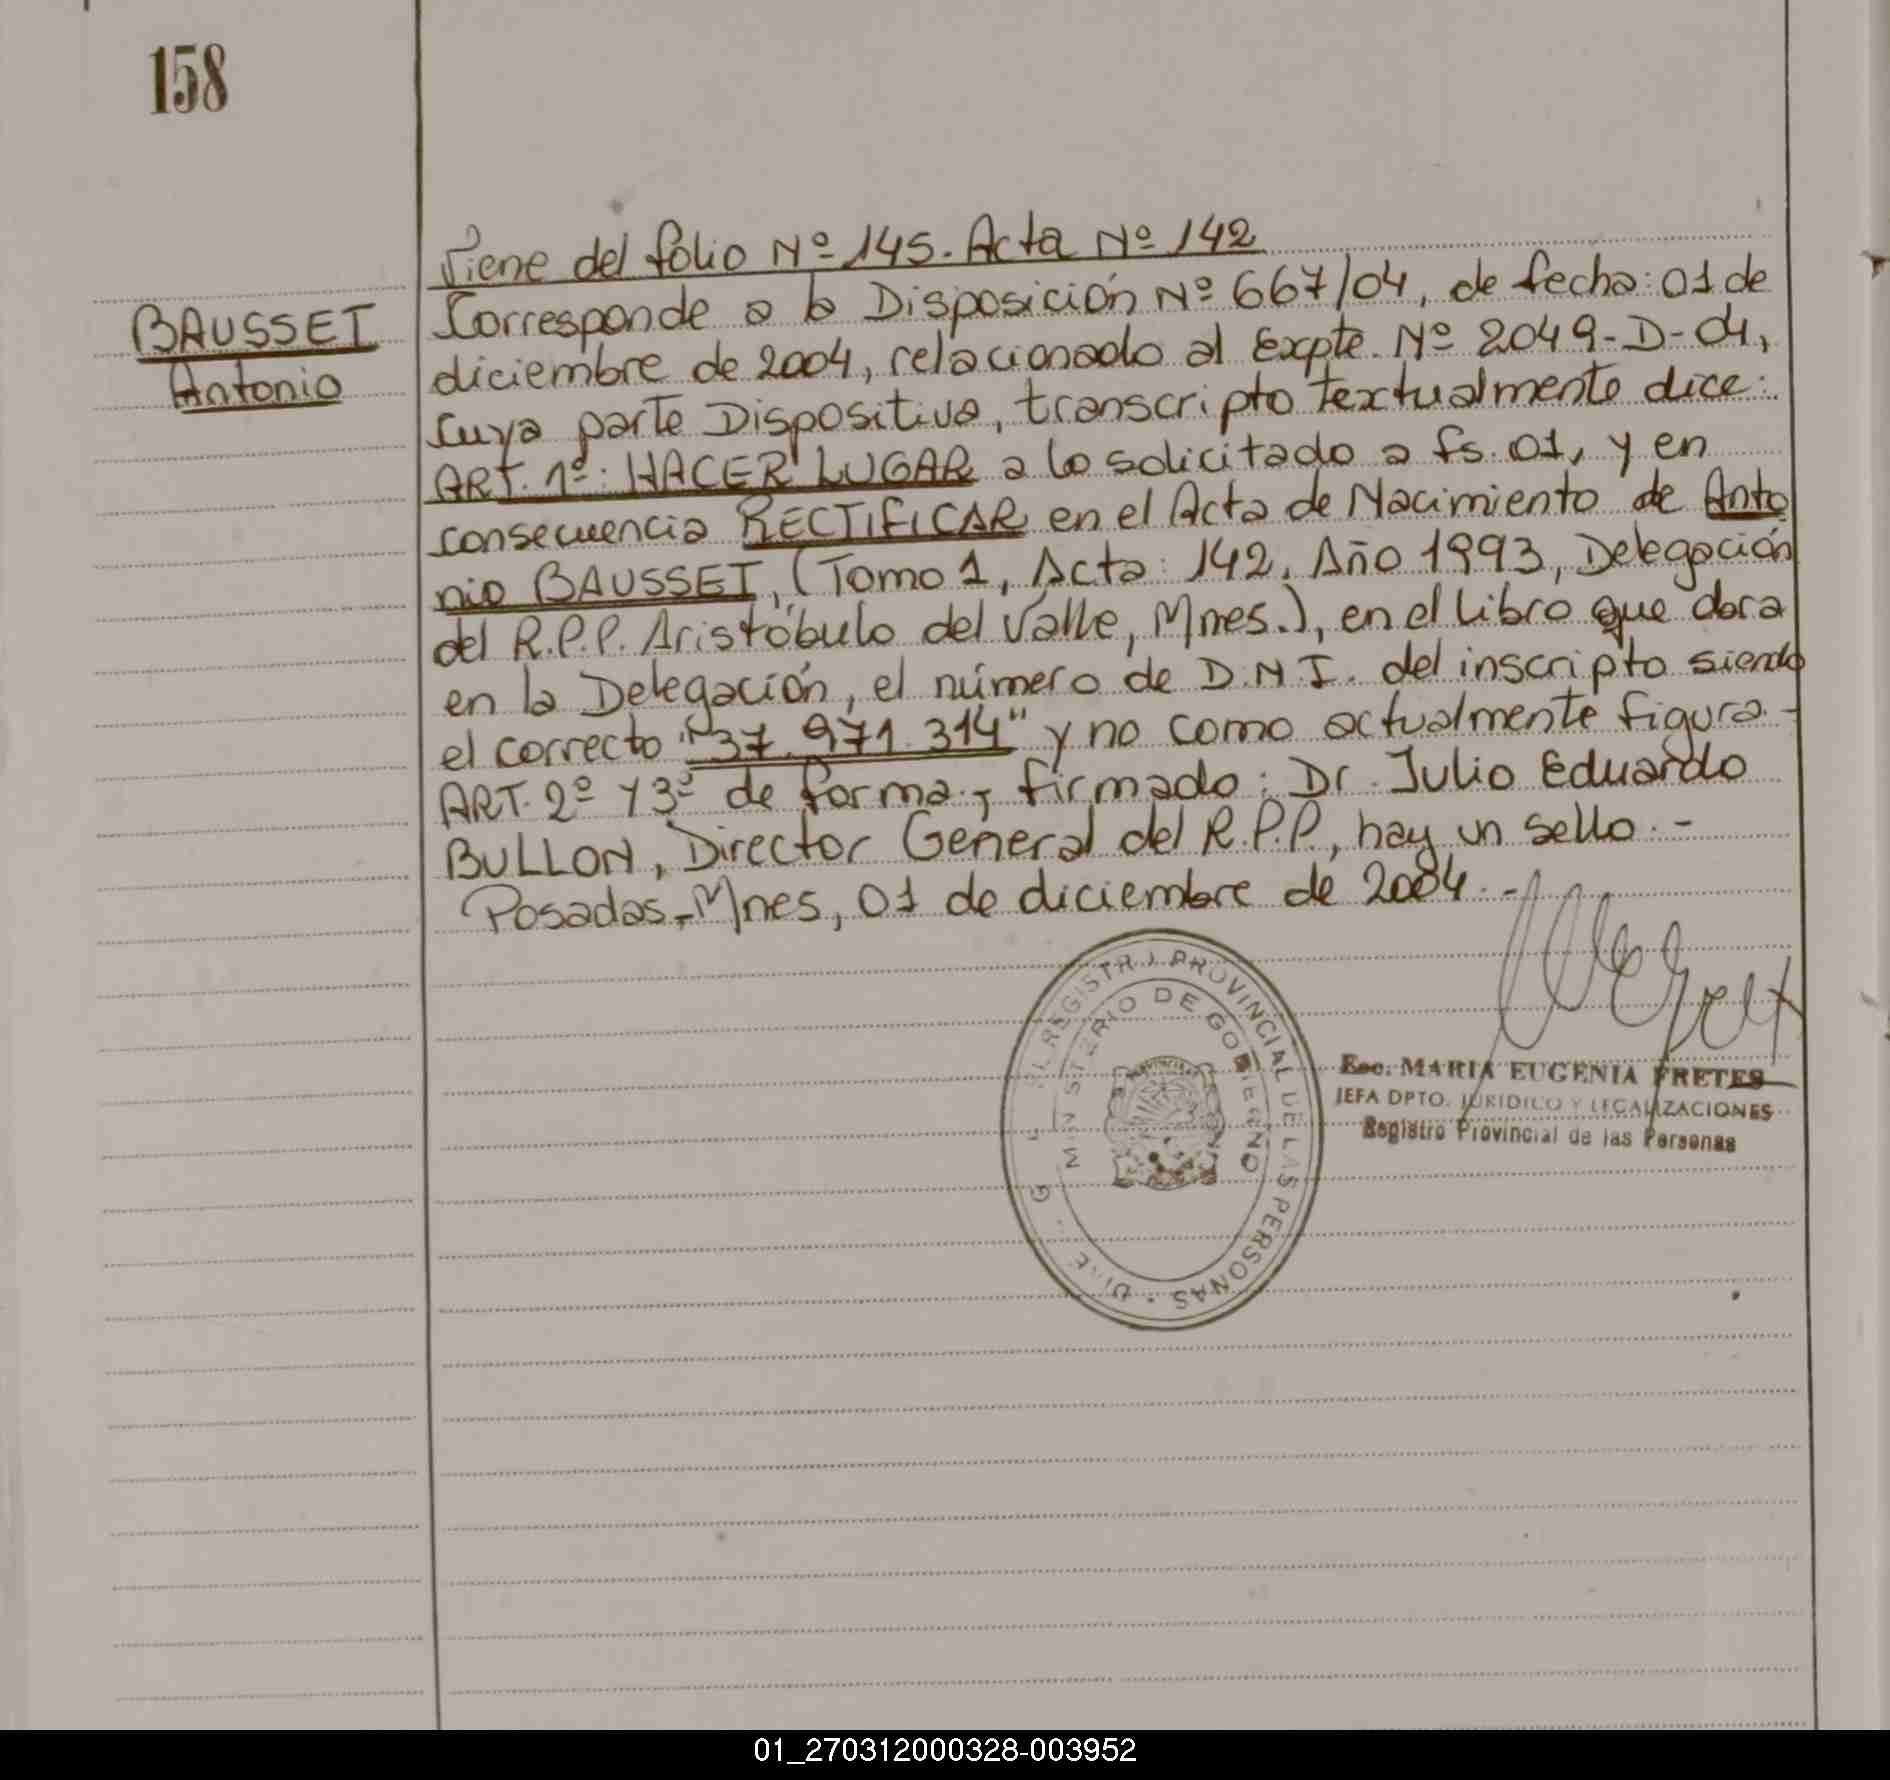 158
BAUSSET
Antonio
Viene del folio Nº 145. Acta Nº 142
Corresponde a la Disposición Nº 667/04, de fecha: 01 de
diciembre de 2004, relacionado al Expte. Nº 2049-D-04,
cuya parte Dispositiva, transcripta textualmente dice:
ART. 1º: HACER LUGAR a lo solicitado a fs. 01, y en
consecuencia RECTIFICAR en el Acta de Nacimiento de Anto
nio BAUSSET, (Tomo 1, Acta: 142, Año 1993, Delegación
del R.P.P. Aristóbulo del Valle, Mnes.), en el libro que obra
en la Delegación, el número de D.N.I. del inscripto siendo
el correcto "37.971.314" y no como actualmente figura.-
ART. 2º y 3º de forma, firmado: Dr. Julio Eduardo
BULLON, Director General del R.P.P., hay un sello.-
Posadas, Mnes, 01 de diciembre de 2004.-
REGISTRO PROVINCIAL DE LAS PERSONAS
MINISTERIO DE GOBIERNO
Esc. MARIA EUGENIA FRETES
JEFA DPTO. JURIDICO Y LEGALIZACIONES
Registro Provincial de las Personas
01_270312000328-003952